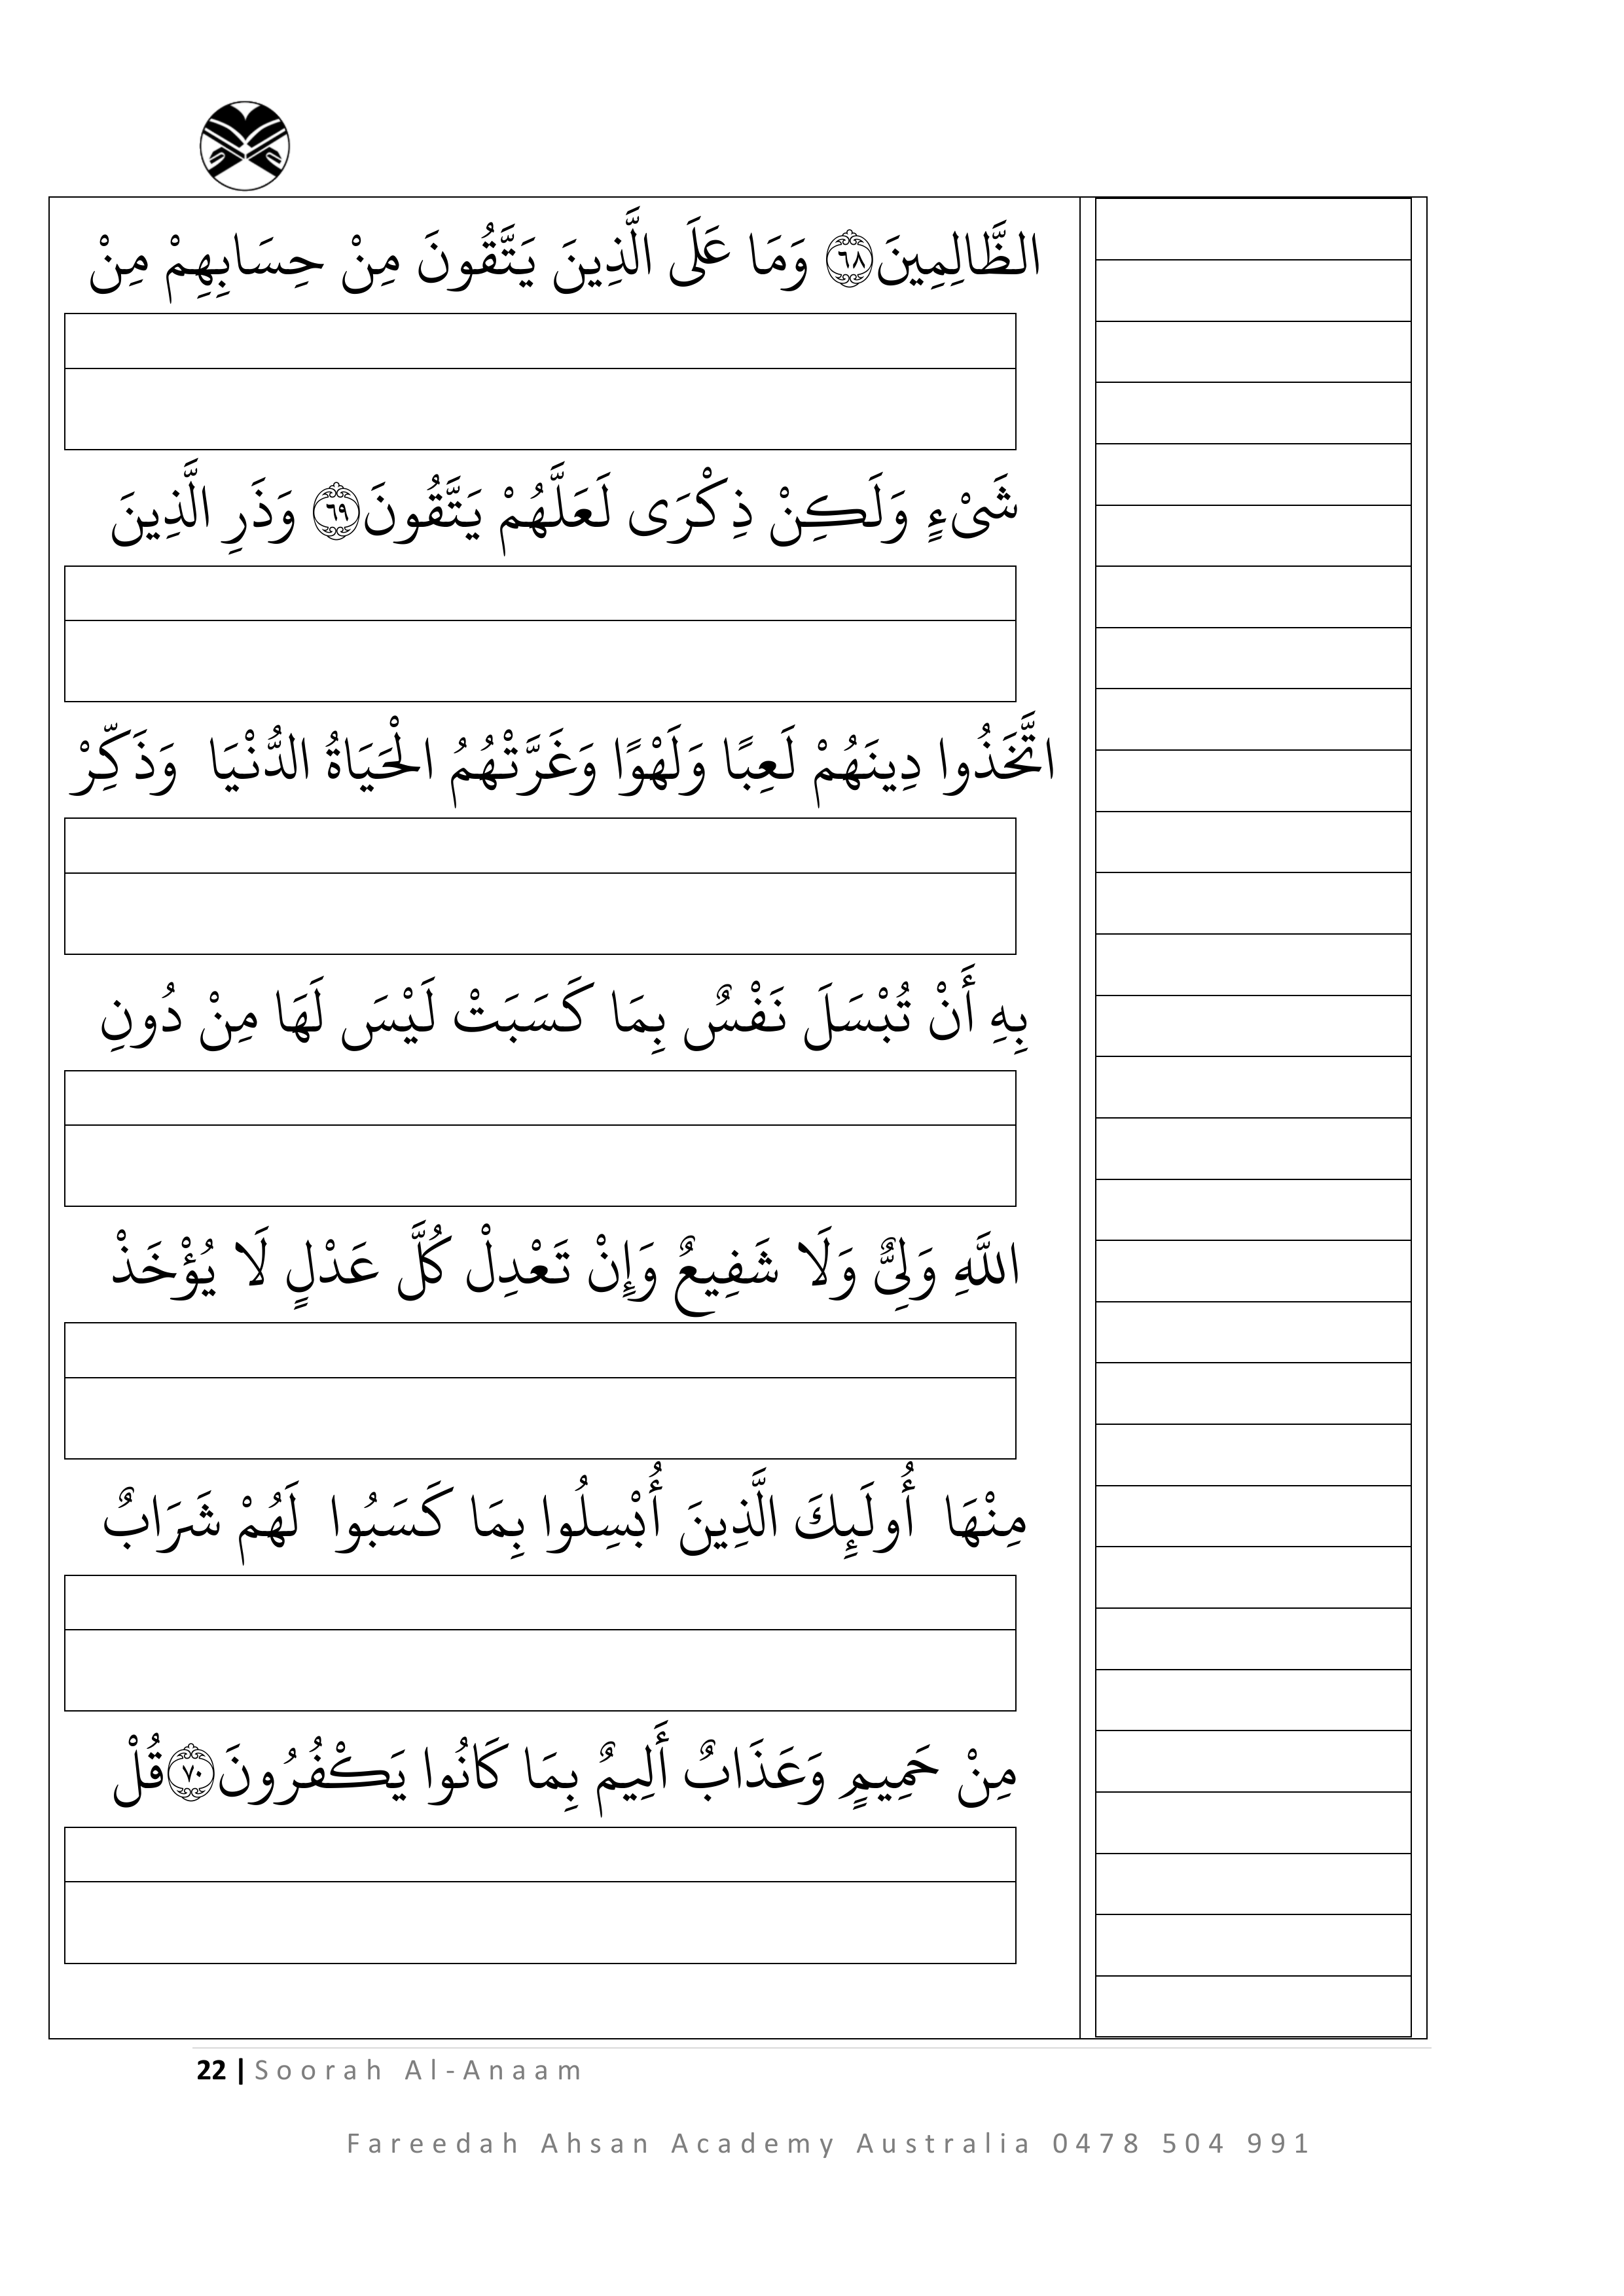 الظَّالِمِينَ ۝٦٨ وَمَا عَلَى الَّذِينَ يَتَّقُونَ مِنْ حِسَابِهِمْ مِنْ
شَىْءٍ وَلَكِنْ ذِكْرَى لَعَلَّهُمْ يَتَّقُونَ ۝٦٩ وَذَرِ الَّذِينَ
اتَّخَذُوا دِينَهُمْ لَعِبًا وَلَهْوًا وَغَرَّتْهُمُ الْحَيَاةُ الدُّنْيَا وَذَكِّرْ
بِهِ أَنْ تُبْسَلَ نَفْسٌ بِمَا كَسَبَتْ لَيْسَ لَهَا مِنْ دُونِ
اللَّهِ وَلِىٌّ وَلَا شَفِيعٌ وَإِنْ تَعْدِلْ كُلَّ عَدْلٍ لَا يُؤْخَذْ
مِنْهَا أُولَئِكَ الَّذِينَ أُبْسِلُوا بِمَا كَسَبُوا لَهُمْ شَرَابٌ
مِنْ حَمِيمٍ وَعَذَابٌ أَلِيمٌ بِمَا كَانُوا يَكْفُرُونَ ۝٧٠ قُلْ
22 | Soorah Al-Anaam
Fareedah Ahsan Academy Australia 0478 504 991